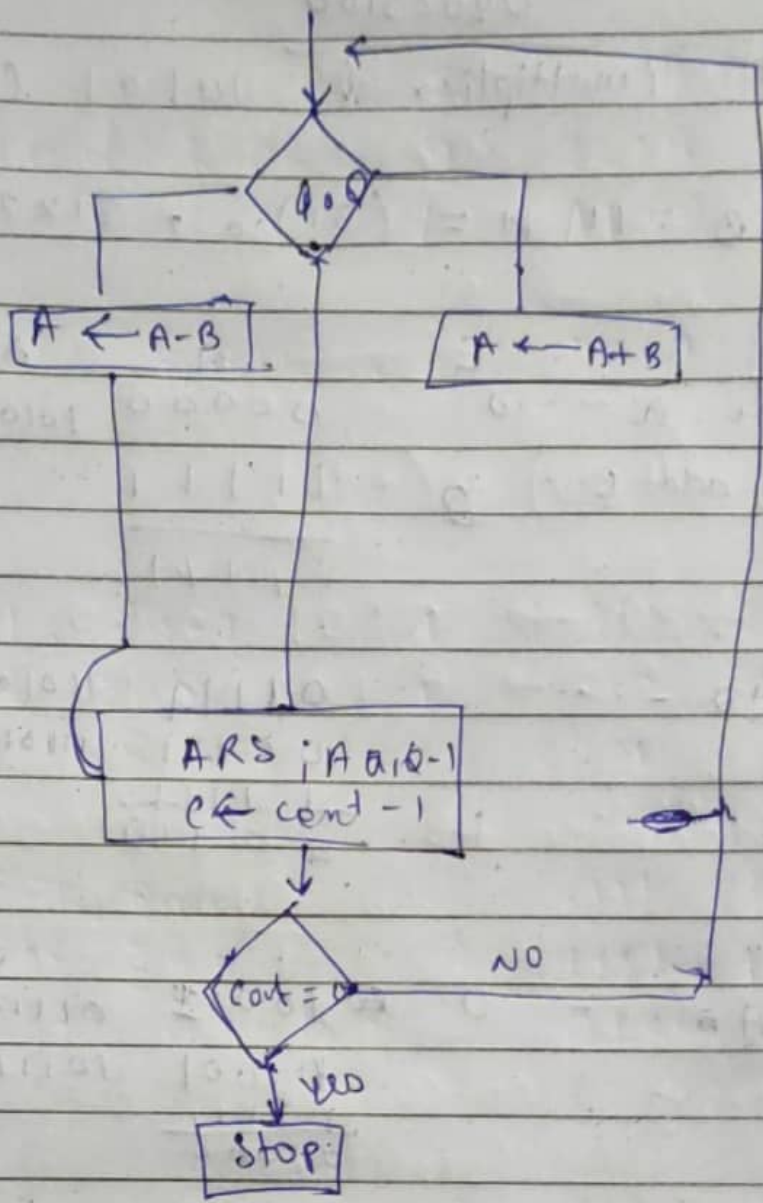 A ← A-B
A ← A+B
ARS ; A Q, Q-1
C ← cont -1
Cout = 0
NO
yes
Stop